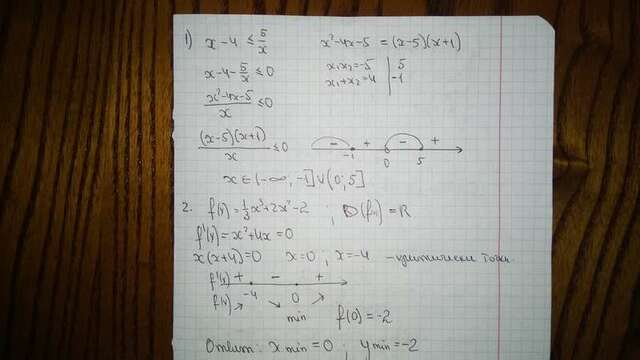 1) x-4 ≤ 5/x
x-4-5/x ≤ 0
(x²-4x-5)/x ≤ 0
x²-4x-5 = (x-5)(x+1)
x₁x₂=-5 | 5
x₁+x₂=4 | -1
((x-5)(x+1))/x ≤ 0
- + - +
-1 0 5
x ∈ (-∞; -1] ∪ (0; 5]
2. f(x) = 1/3x³+2x²-2; D(f(x)) = R
f'(x) = x²+4x = 0
x(x+4)=0 x=0; x=-4 - критические точки.
f'(x) + - +
f(x) ↗ -4 ↘ 0 ↗
min f(0) = -2
Ответ: x min = 0; y min = -2